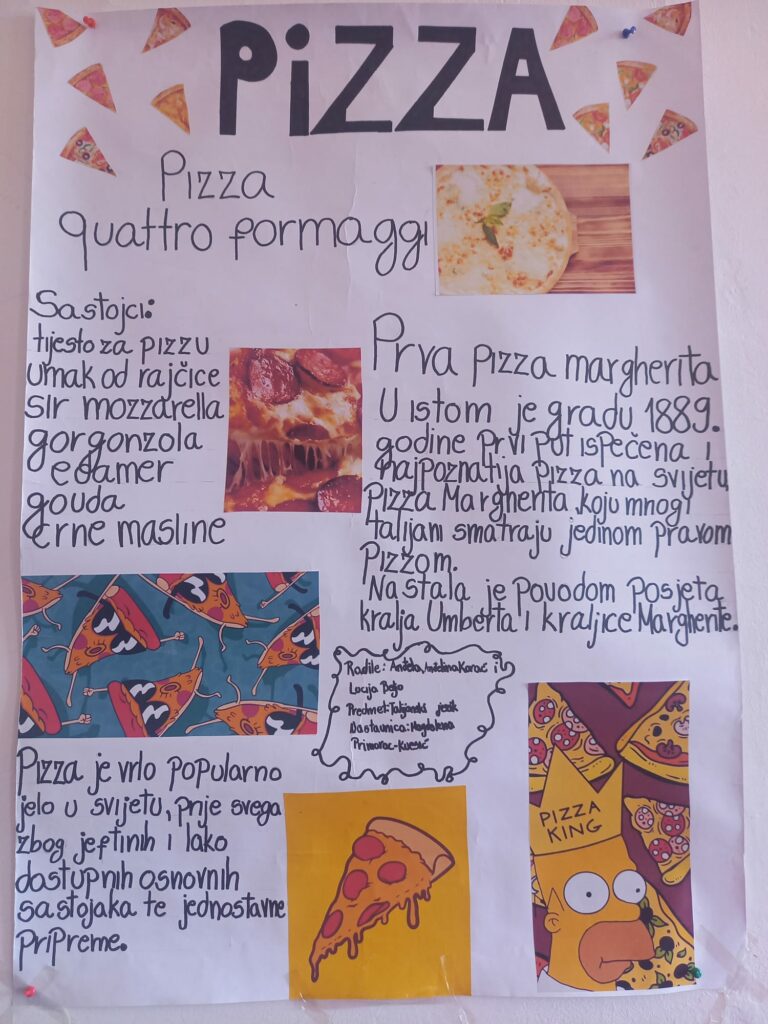 PiZZA
Pizza
quattro formaggi
Sastojci:
tijesto za pizzu
umak od rajčice
sir mozzarella
gorgonzola
edamer
gouda
crne masline
Prva pizza margherita
U istom je gradu 1889.
godine prvi put ispečena i
najpoznatija pizza na svijetu
Pizza Margherita, koju mnogi
talijani smatraju jedinom pravom
pizzom.
Nastala je povodom posjeta
kralja Umberta i kraljice Margherite.
Radile: Anđela, Anđelina Karač i
Lucija
Predmet: Talijanski jezik
Nastavnica: Magdalena
Primorac-
Pizza je vrlo popularno
jelo u svijetu, prije svega
zbog jeftinih i lako
dostupnih osnovnih
sastojaka te jednostavne
pripreme.
PIZZA
KING